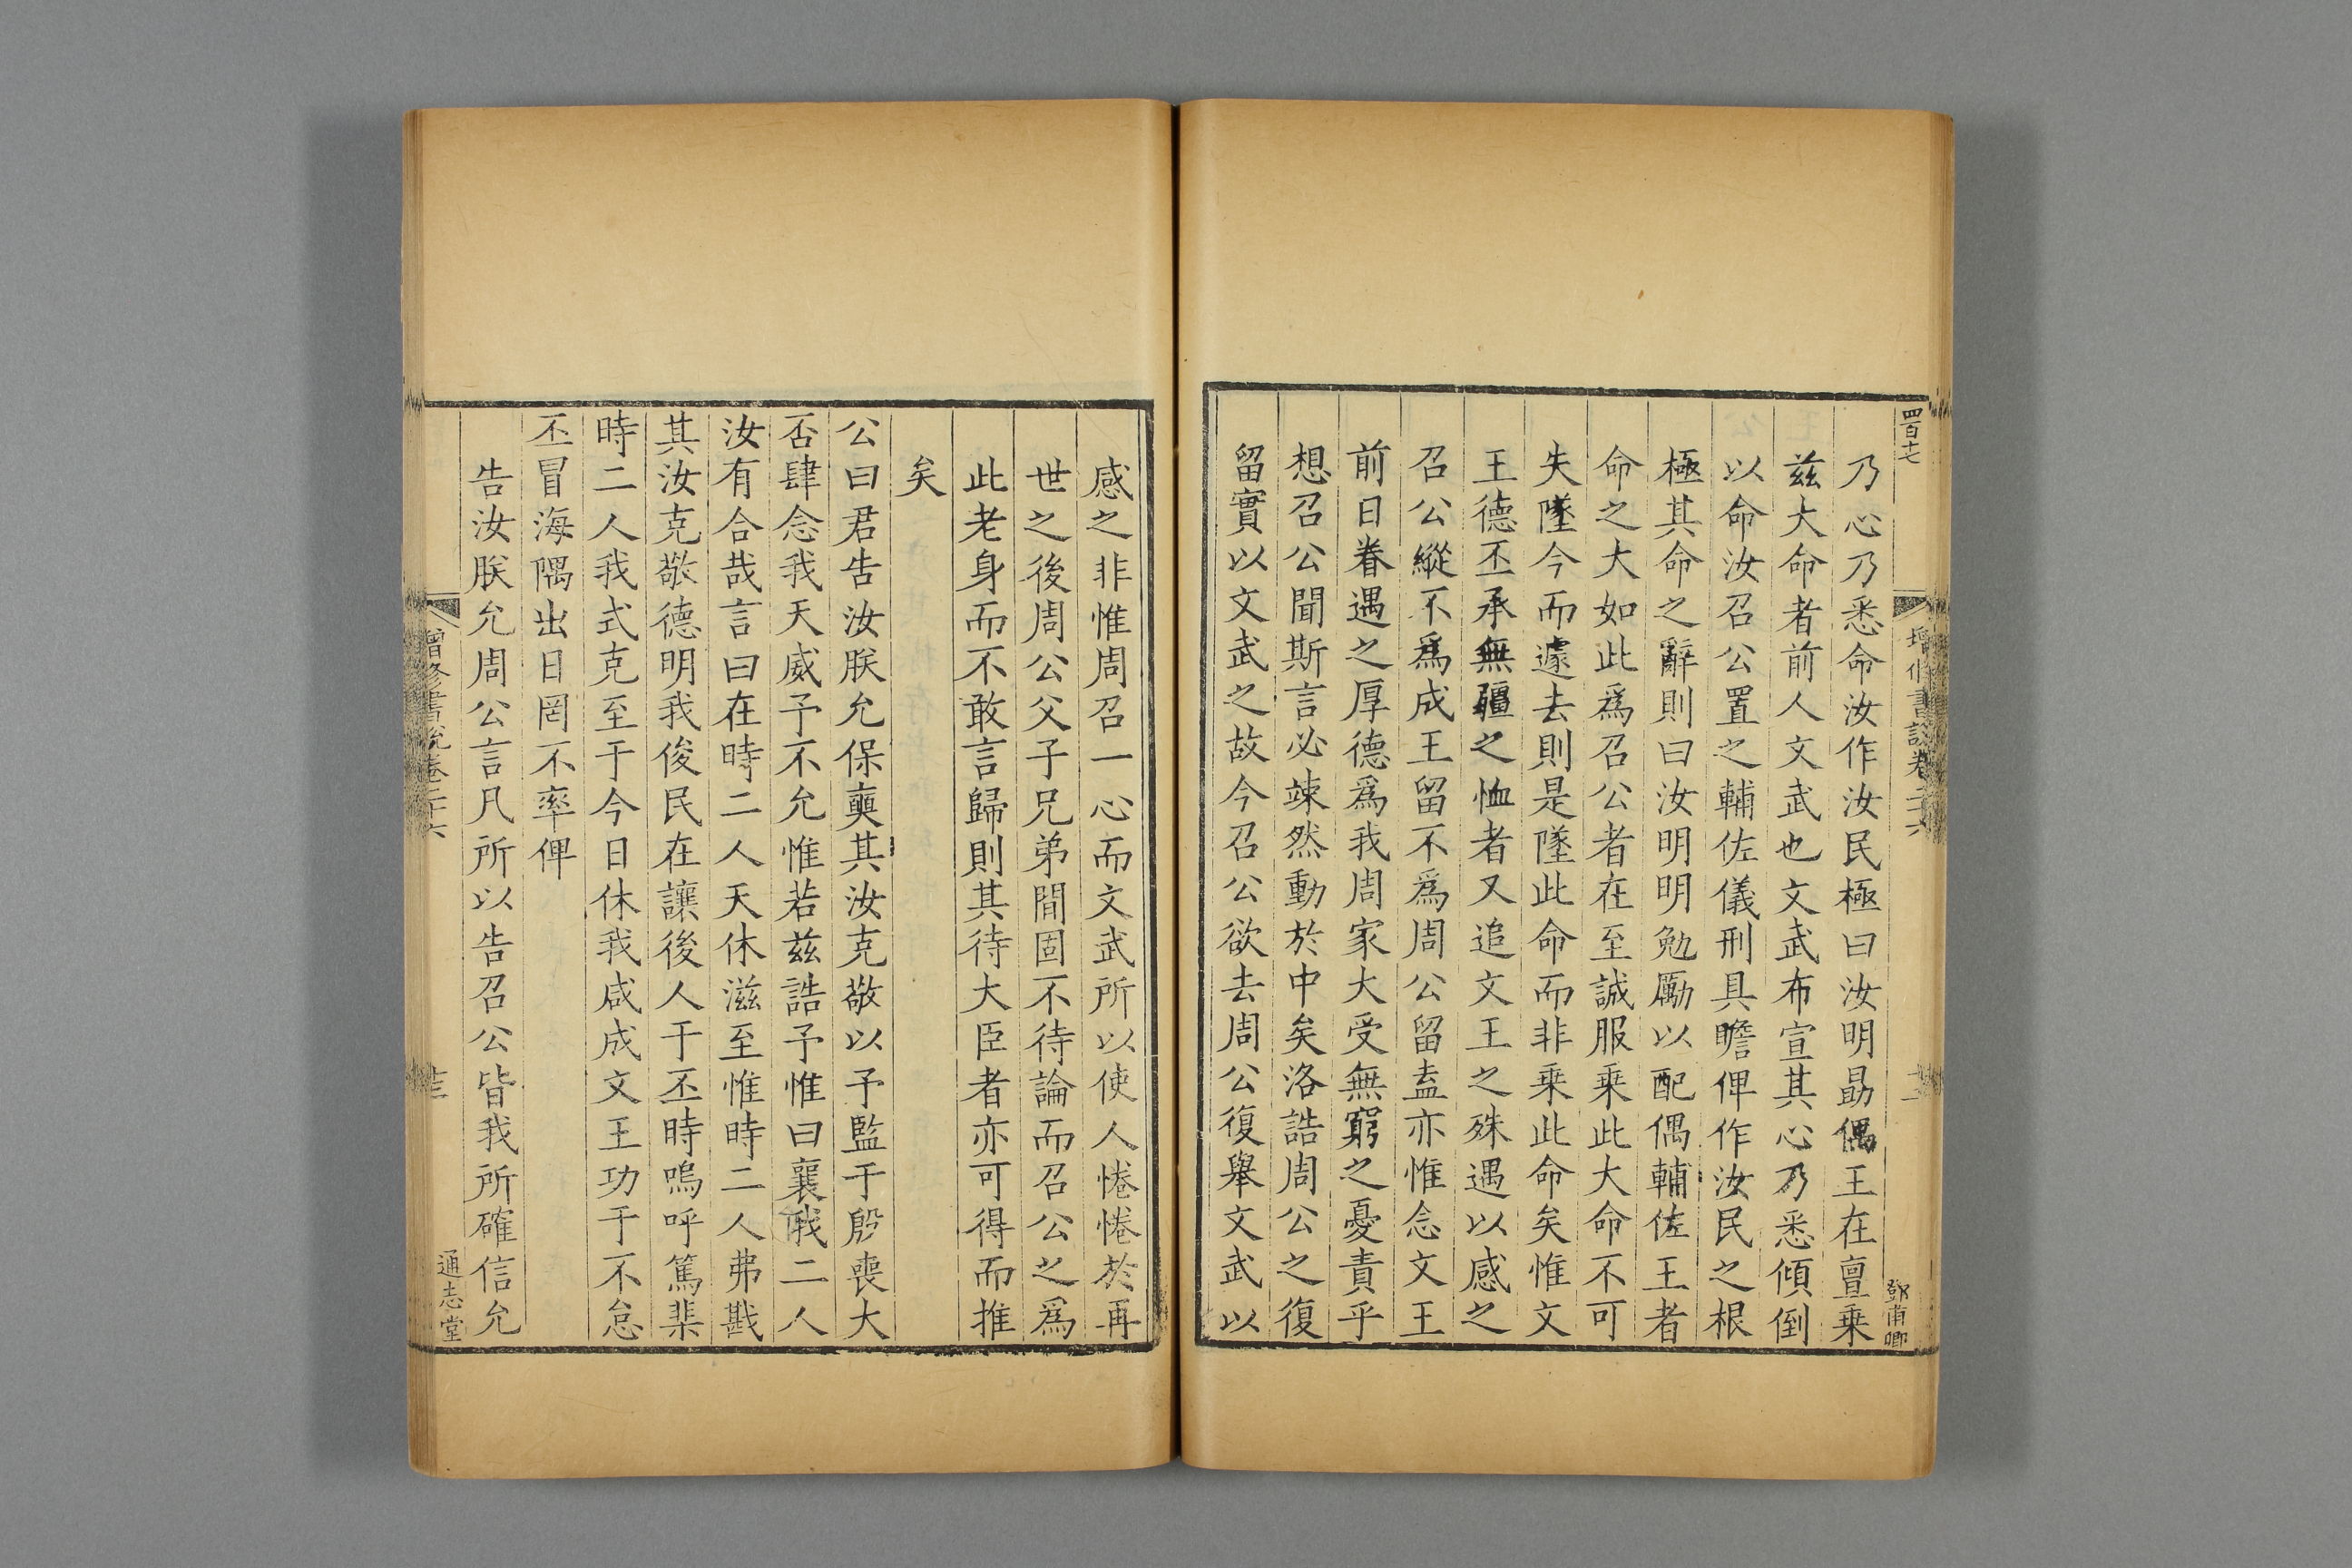 四百十七
增修書說卷二十六
鄧甫卿
乃心乃悉命汝作汝民極曰汝明勗偶王在亶乗
兹大命者前人文武也文武布宣其心乃悉傾倒
以命汝召公置之輔佐儀刑具瞻俾作汝民之根
極其命之辭則曰汝明明勉勵以配偶輔佐王者
命之大如此爲召公者在至誠服乗此大命不可
失墜今而遽去則是墜此命而非乗此命矣惟文
王德丕承無疆之恤者又追文王之殊遇以感之
召公縱不爲成王留不爲周公留盍亦惟念文王
前日眷遇之厚德爲我周家大受無窮之憂責乎
想召公聞斯言必竦然動於中矣洛誥周公之復
留實以文武之故今召公欲去周公復舉文武以
感之非惟周召一心而文武所以使人惓惓於再
世之後周公父子兄弟間固不待論而召公之爲
此老身而不敢言歸則其待大臣者亦可得而推
矣
公曰君告汝朕允保奭其汝克敬以予監于殷喪大
否肆念我天威予不允惟若兹誥予惟曰襄我二人
汝有合哉言曰在時二人天休滋至惟時二人弗戡
其汝克敬德明我俊民在讓後人于丕時嗚呼篤棐
時二人我式克至于今日休我咸成文王功于不怠
丕冒海隅出日罔不率俾
告汝朕允周公言凡所以告召公皆我所確信允
增修書說卷二十六
通志堂